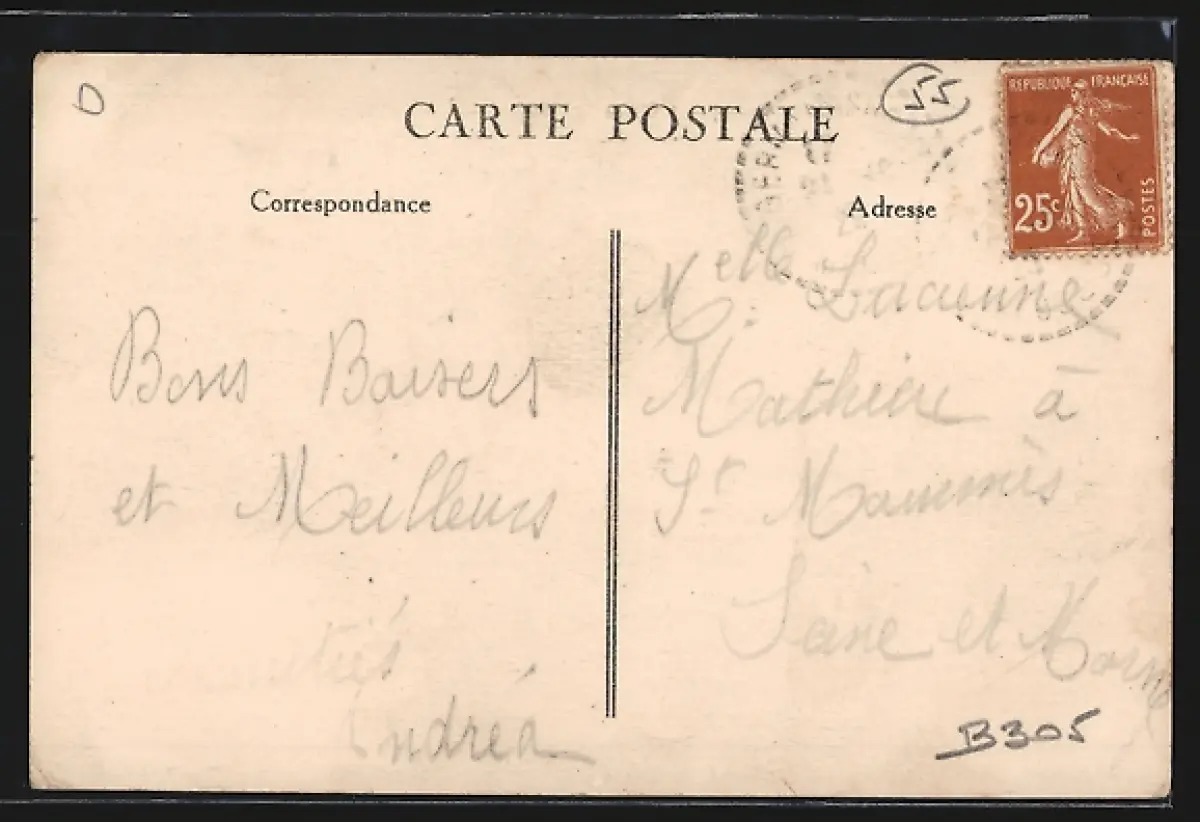 D
CARTE POSTALE
55
REPUBLIQUE FRANÇAISE
25c
POSTES
Correspondance
Adresse
Bons Baisers
et Meilleurs
Andréa
Melle
Mathieu à
St Mammès
Seine et Marne
B305